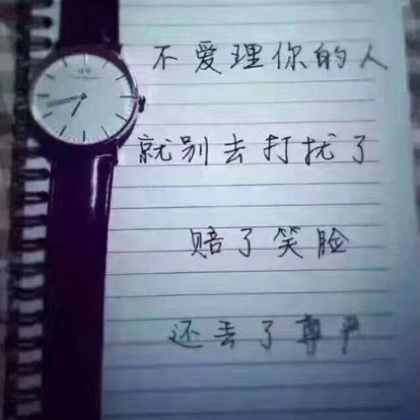 不爱理你的人
就别去打扰了
赔了笑脸
还丢了尊严